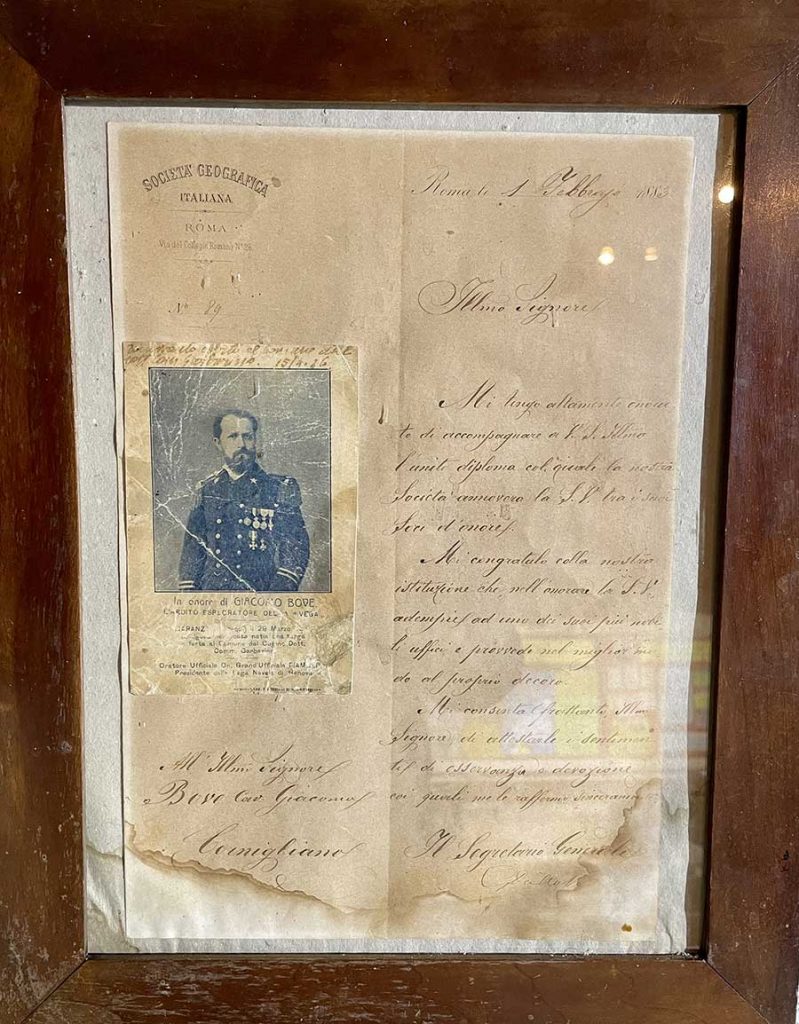 SOCIETA' GEOGRAFICA
ITALIANA
ROMA
Via del Collegio Romano Nº 26
Nº 89
Roma li 1 Febbrajo 1883
Illmo Signore
Mi tengo altamente onora
to di accompagnare a V. S. Illma
l'unito diploma col quale la nostra
Società annovera la S. V. tra i suoi
Soci d'onore.
Mi congratulo colla nostra
istituzione che, nell'onorare la S. V.
adempie ad uno dei suoi più nobi
li uffici e provvede nel miglior mo
do al proprio decoro.
Mi consenta frattanto, Illmo
Signore, di attestarle i sentimen
ti di osservanza e devozione
coi quali me le raffermo
Il Segretario Generale
15/4.26
In onore di GIACOMO BOVE
ARDITO ESPLORATORE DELLA "VEGA"
29 Marzo
Cugino Dott.
Comm.
Oratore Ufficiale On. Grand'Ufficiale
Presidente della Lega Navale di Genova
All' Illmo Signore
Bove Cav Giacomo
Cornigliano